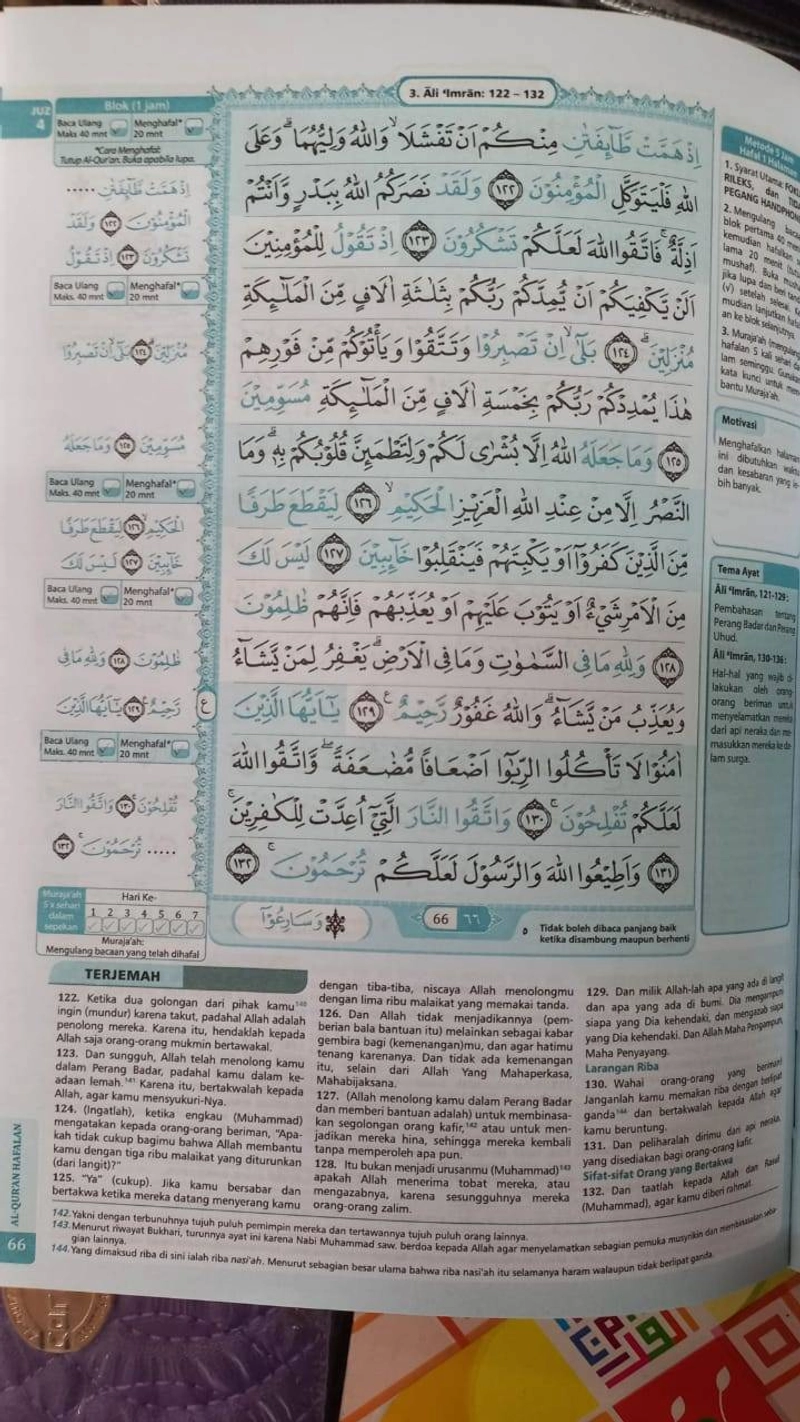 3. Āli ‘Imrān: 122 – 132
JUZ
4
Blok (1 jam)
Baca Ulang
Maks 40 mnt
Menghafal*
20 mnt
*Cara Menghafal:
Tutup Al-Qur'an. Buka apabila lupa.
اِذْ هَمَّتْ طَّاۤىِٕفَتٰنِ .....
الْمُؤْمِنُوْنَ ١٢٢ وَلَقَدْ
تَشْكُرُوْنَ ١٢٣ اِذْ تَقُوْلُ
Baca Ulang
Maks. 40 mnt
Menghafal*
20 mnt
مُنْزَلِيْنَۗ ١٢٤ بَلٰٓىۙ اِنْ تَصْبِرُوْا
مُسَوِّمِيْنَ ١٢٥ وَمَا جَعَلَهُ
Baca Ulang
Maks. 40 mnt
Menghafal*
20 mnt
الْحَكِيْمِۙ ١٢٦ لِيَقْطَعَ طَرَفًا
خَاۤىِٕبِيْنَ ١٢٧ لَيْسَ لَكَ
Baca Ulang
Maks. 40 mnt
Menghafal*
20 mnt
ظٰلِمُوْنَ ١٢٨ وَلِلّٰهِ مَا فِى
رَّحِيْمٌ ࣖ ١٢٩ يٰٓاَيُّهَا الَّذِيْنَ
Baca Ulang
Maks. 40 mnt
Menghafal*
20 mnt
تُفْلِحُوْنَۚ ١٣٠ وَاتَّقُوا النَّارَ
..... تُرْحَمُوْنَۚ ١٣٢
Muraja'ah
5 x sehari
dalam
sepekan
Hari Ke-
1 2 3 4 5 6 7
Muraja'ah:
Mengulang bacaan yang telah dihafal
اِذْ هَمَّتْ طَّاۤىِٕفَتٰنِ مِنْكُمْ اَنْ تَفْشَلَاۙ وَاللّٰهُ وَلِيُّهُمَاۗ وَعَلَى
اللّٰهِ فَلْيَتَوَكَّلِ الْمُؤْمِنُوْنَ ١٢٢ وَلَقَدْ نَصَرَكُمُ اللّٰهُ بِبَدْرٍ وَّاَنْتُمْ
اَذِلَّةٌ ۚ فَاتَّقُوا اللّٰهَ لَعَلَّكُمْ تَشْكُرُوْنَ ١٢٣ اِذْ تَقُوْلُ لِلْمُؤْمِنِيْنَ
اَلَنْ يَّكْفِيَكُمْ اَنْ يُّمِدَّكُمْ رَبُّكُمْ بِثَلٰثَةِ اٰلَافٍ مِّنَ الْمَلٰۤىِٕكَةِ
مُنْزَلِيْنَۗ ١٢٤ بَلٰٓىۙ اِنْ تَصْبِرُوْا وَتَتَّقُوْا وَيَأْتُوْكُمْ مِّنْ فَوْرِهِمْ
هٰذَا يُمْدِدْكُمْ رَبُّكُمْ بِخَمْسَةِ اٰلَافٍ مِّنَ الْمَلٰۤىِٕكَةِ مُسَوِّمِيْنَ
١٢٥ وَمَا جَعَلَهُ اللّٰهُ اِلَّا بُشْرٰى لَكُمْ وَلِتَطْمَىِٕنَّ قُلُوْبُكُمْ بِهٖۗ وَمَا
النَّصْرُ اِلَّا مِنْ عِنْدِ اللّٰهِ الْعَزِيْزِ الْحَكِيْمِۙ ١٢٦ لِيَقْطَعَ طَرَفًا
مِّنَ الَّذِيْنَ كَفَرُوْٓا اَوْ يَكْبِتَهُمْ فَيَنْقَلِبُوْا خَاۤىِٕبِيْنَ ١٢٧ لَيْسَ لَكَ
مِنَ الْاَمْرِ شَيْءٌ اَوْ يَتُوْبَ عَلَيْهِمْ اَوْ يُعَذِّبَهُمْ فَاِنَّهُمْ ظٰلِمُوْنَ
١٢٨ وَلِلّٰهِ مَا فِى السَّمٰوٰتِ وَمَا فِى الْاَرْضِۗ يَغْفِرُ لِمَنْ يَّشَاۤءُ
وَيُعَذِّبُ مَنْ يَّشَاۤءُ ۗ وَاللّٰهُ غَفُوْرٌ رَّحِيْمٌ ࣖ ١٢٩ يٰٓاَيُّهَا الَّذِيْنَ
اٰمَنُوْا لَا تَأْكُلُوا الرِّبٰوٓا اَضْعَافًا مُّضٰعَفَةً ۖ وَّاتَّقُوا اللّٰهَ
لَعَلَّكُمْ تُفْلِحُوْنَۚ ١٣٠ وَاتَّقُوا النَّارَ الَّتِيْٓ اُعِدَّتْ لِلْكٰفِرِيْنَۚ
١٣١ وَاَطِيْعُوا اللّٰهَ وَالرَّسُوْلَ لَعَلَّكُمْ تُرْحَمُوْنَۚ ١٣٢
ع
وَسَارِعُوْٓا
66 ٦٦
Tidak boleh dibaca panjang baik
ketika disambung maupun berhenti
Metode 5 Jam
Hafal 1 Halaman
1. Syarat Utama:
RILEKS, dan
PEGANG HANDPHONE
2. Mengulang
blok pertama 40
kemudian hafalkan
lama 20 menit
mushaf). Buka
jika lupa dan beri
(√) setelah
mudian lanjutkan
an ke blok selanjutnya.
3. Muraja'ah
hafalan 5 kali sehari
lam seminggu.
kata kunci untuk
bantu Muraja'ah.
Motivasi
Menghafalkan halaman
ini dibutuhkan waktu
dan kesabaran yang le-
bih banyak.
Tema Ayat
Āli ‘Imrān, 121-129:
Pembahasan tentang
Perang Badar dan Perang
Uhud.
Āli ‘Imrān, 130-136:
Hal-hal yang wajib di-
lakukan oleh orang-
orang beriman untuk
menyelamatkan mereka
dari api neraka dan me-
masukkan mereka ke da-
lam surga.
TERJEMAH
122. Ketika dua golongan dari pihak kamu¹⁴⁰
ingin (mundur) karena takut, padahal Allah adalah
penolong mereka. Karena itu, hendaklah kepada
Allah saja orang-orang mukmin bertawakal.
123. Dan sungguh, Allah telah menolong kamu
dalam Perang Badar, padahal kamu dalam ke-
adaan lemah.¹⁴¹ Karena itu, bertakwalah kepada
Allah, agar kamu mensyukuri-Nya.
124. (Ingatlah), ketika engkau (Muhammad)
mengatakan kepada orang-orang beriman, “Apa-
kah tidak cukup bagimu bahwa Allah membantu
kamu dengan tiga ribu malaikat yang diturunkan
(dari langit)?”
125. “Ya” (cukup). Jika kamu bersabar dan
bertakwa ketika mereka datang menyerang kamu
dengan tiba-tiba, niscaya Allah menolongmu
dengan lima ribu malaikat yang memakai tanda.
126. Dan Allah tidak menjadikannya (pem-
berian bala bantuan itu) melainkan sebagai kabar
gembira bagi (kemenangan)mu, dan agar hatimu
tenang karenanya. Dan tidak ada kemenangan
itu, selain dari Allah Yang Mahaperkasa,
Mahabijaksana.
127. (Allah menolong kamu dalam Perang Badar
dan memberi bantuan adalah) untuk membinasa-
kan segolongan orang kafir,¹⁴² atau untuk men-
jadikan mereka hina, sehingga mereka kembali
tanpa memperoleh apa pun.
128. Itu bukan menjadi urusanmu (Muhammad)¹⁴³
apakah Allah menerima tobat mereka, atau
mengazabnya, karena sesungguhnya mereka
orang-orang zalim.
129. Dan milik Allah-lah apa yang ada di langit
dan apa yang ada di bumi. Dia mengampuni
siapa yang Dia kehendaki, dan mengazab siapa
yang Dia kehendaki. Dan Allah Maha Pengampun,
Maha Penyayang.
Larangan Riba
130. Wahai orang-orang yang beriman!
Janganlah kamu memakan riba dengan berlipat
ganda¹⁴⁴ dan bertakwalah kepada Allah agar
kamu beruntung.
131. Dan peliharalah dirimu dari api neraka,
yang disediakan bagi orang-orang kafir.
Sifat-sifat Orang yang Bertakwa
132. Dan taatlah kepada Allah dan Rasul
(Muhammad), agar kamu diberi rahmat.
142. Yakni dengan terbunuhnya tujuh puluh pemimpin mereka dan tertawannya tujuh puluh orang lainnya.
143. Menurut riwayat Bukhari, turunnya ayat ini karena Nabi Muhammad saw. berdoa kepada Allah agar menyelamatkan sebagian pemuka musyrikin dan membinasakan seba-
gian lainnya.
144. Yang dimaksud riba di sini ialah riba nasi'ah. Menurut sebagian besar ulama bahwa riba nasi'ah itu selamanya haram walaupun tidak berlipat ganda.
AL-QUR'AN HAFALAN
66